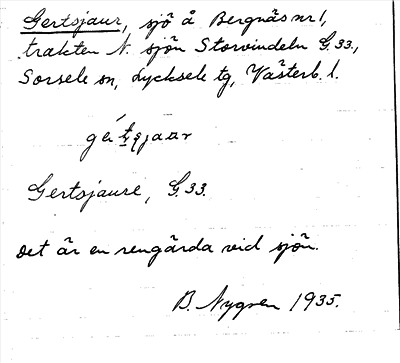 Gertsjaur, sjö å Bergnäs nr 1,
trakten N. sjön Storvindeln G.33.,
Sorsele sn, Lycksele tg, Västerb. l.
Gertsjaure, G.33.
Det är en rengärda vid sjön.
B. Nygren 1935.